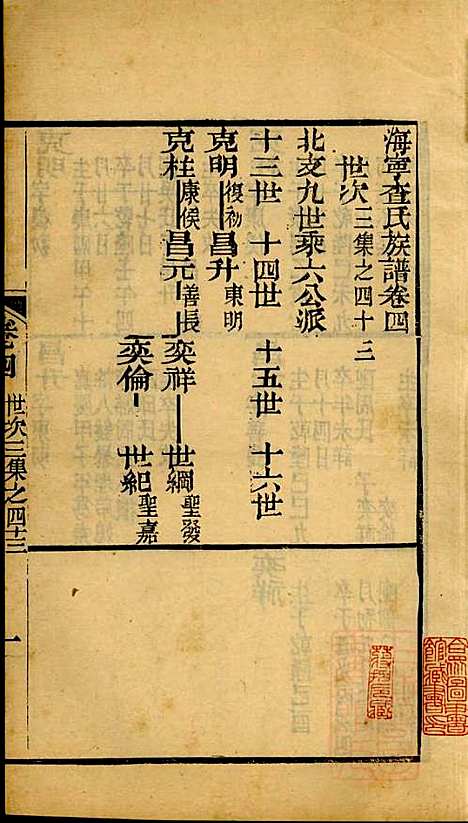 海寧查氏族譜卷四
世次三集之四十三
北支九世乘六公派
十三世 十四世 十五世 十六世
克明 復初 昌升 東明
克桂 康侯 昌元 善長 奕祥 世綱 聖發
奕倫 世紀 聖嘉
卷四 世次三集之四十三 一